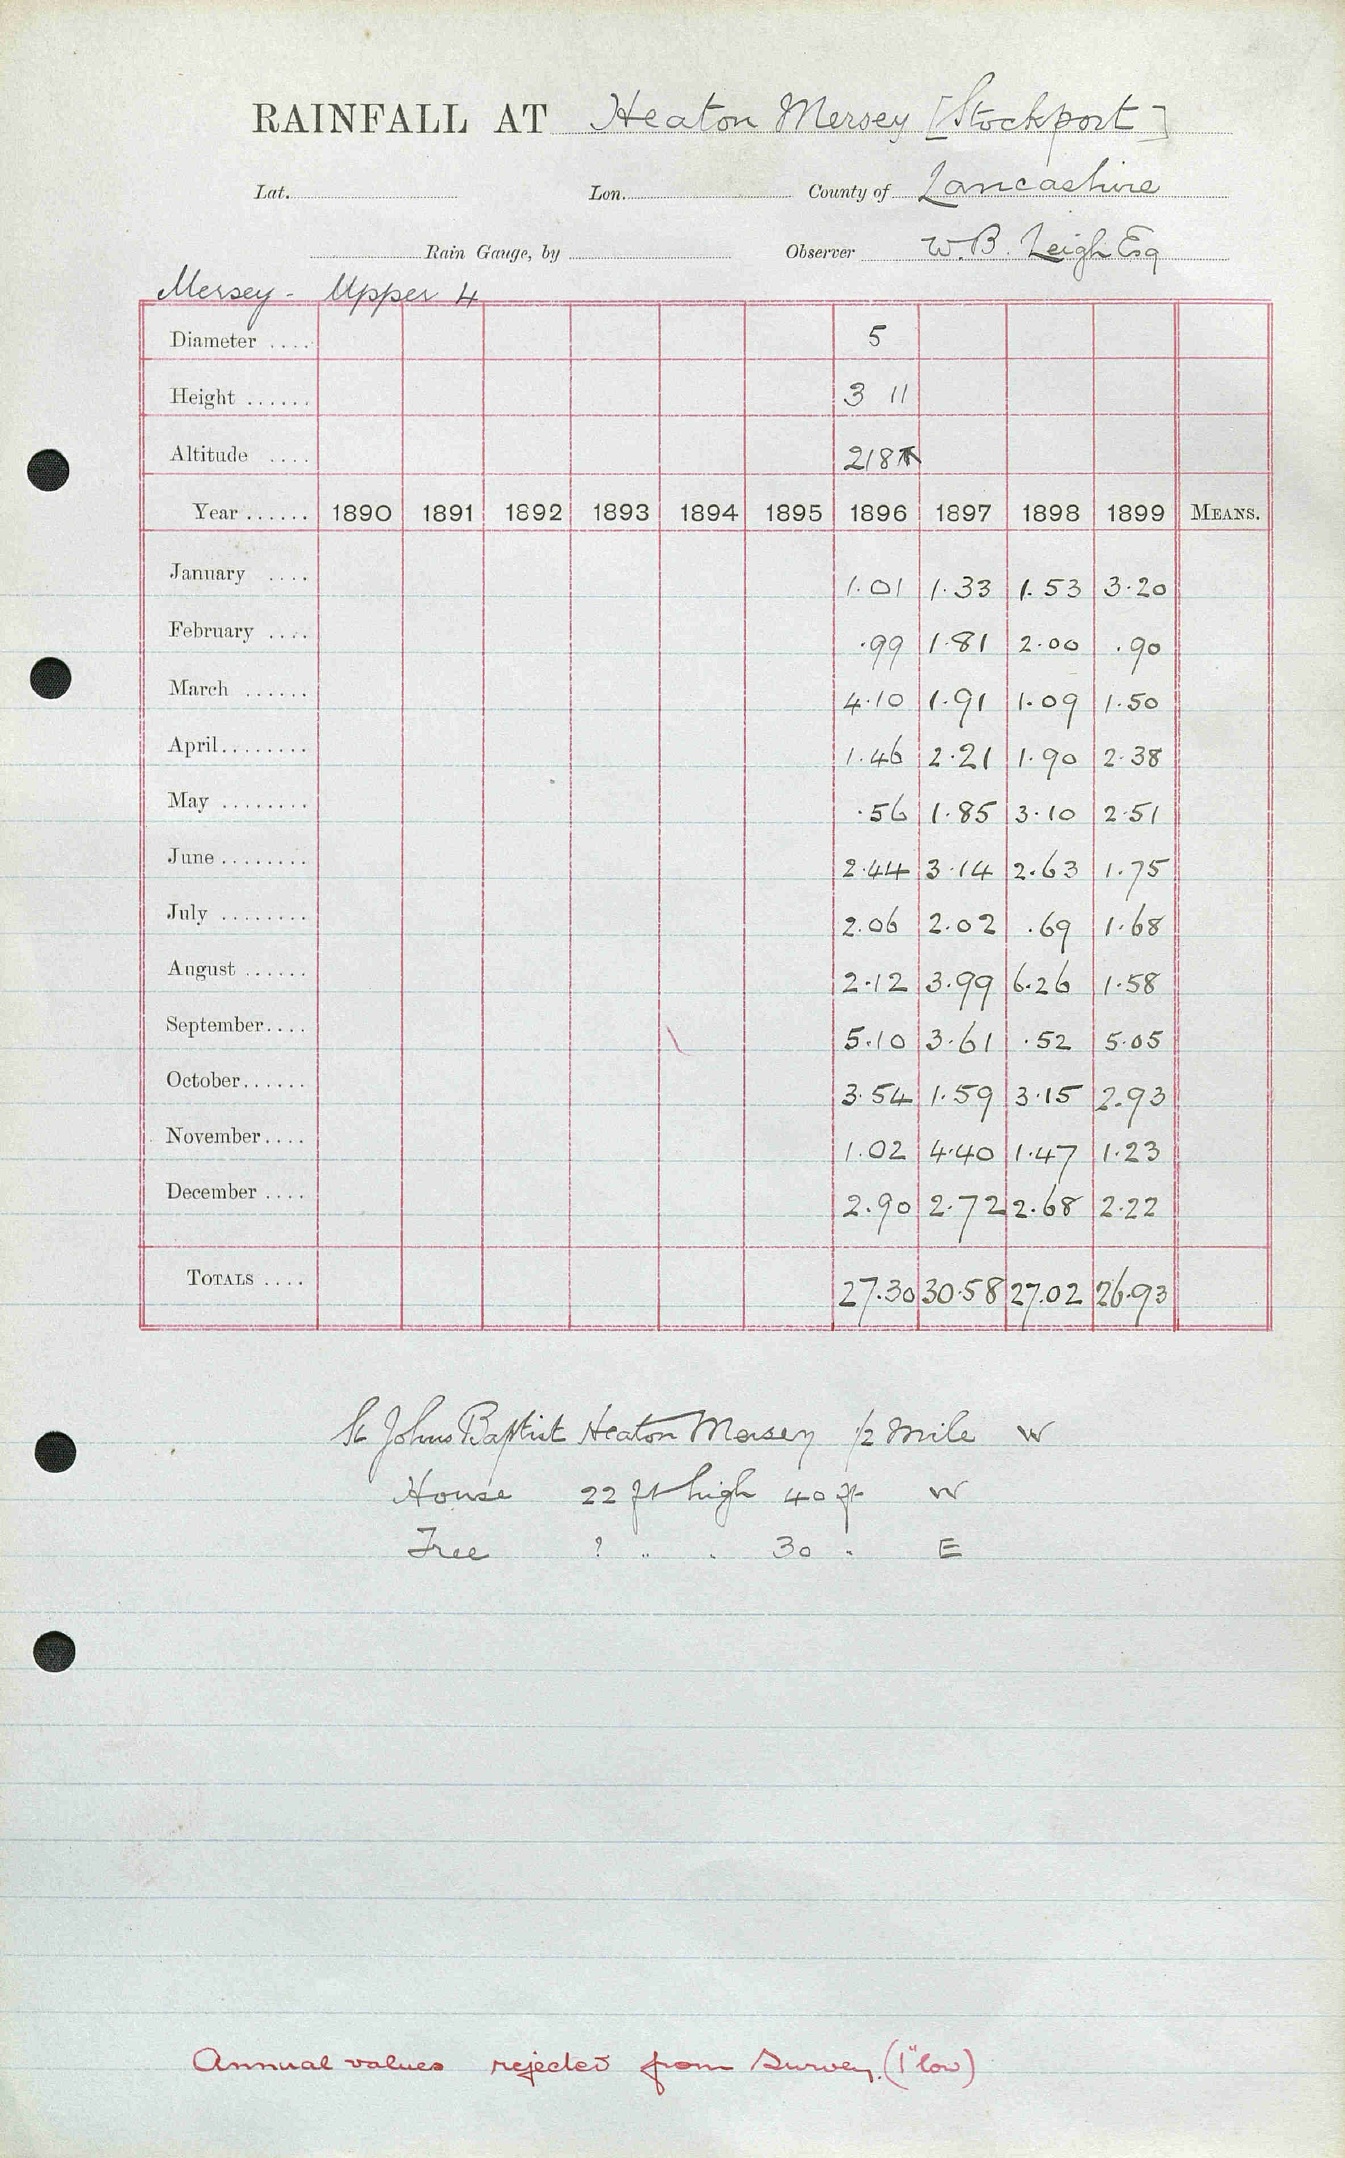 RAINFALL AT Heaton Mersey [Stockport]
Lat. Lon. County of Lancashire
Rain Gauge, by Observer W.B. Leigh Esq
Mersey - Upper 4
Diameter .... 5
Height ...... 3 11
Altitude .... 218
Year ...... 1890 1891 1892 1893 1894 1895 1896 1897 1898 1899 MEANS.
January .... 1.01 1.33 1.53 3.20
February .... .99 1.81 2.00 .90
March ...... 4.10 1.91 1.09 1.50
April........ 1.46 2.21 1.90 2.38
May ........ .56 1.85 3.10 2.51
June ........ 2.44 3.14 2.63 1.75
July ........ 2.06 2.02 .69 1.68
August ...... 2.12 3.99 6.26 1.58
September.... 5.10 3.61 .52 5.05
October...... 3.54 1.59 3.15 2.93
November.... 1.02 4.40 1.47 1.23
December .... 2.90 2.72 2.68 2.22
TOTALS .... 27.30 30.58 27.02 26.93
St Johns Baptist Heaton Mersey 1/2 Mile W
House 22 ft high 40 ft W
Tree ? " " 30 " E
Annual values rejected from Survey. (1" low)